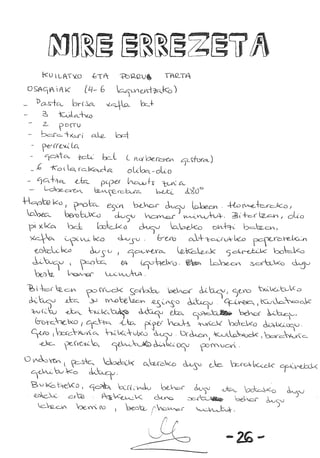 NIRE ERREZETA
KUILATXO ETA PORRUS TARTA
OSAGAIAK (4-6 lagunentzako)
- Pasta brisa xafla bat
- 3 Kuilatxo
- 2 porru
- baratxuri ale bat
- perrexila
- gazta zati bat (norberaren gustora)
- 6 Koilarakada oliba-olio
- gatza eta piper hauts zuria
- labearen tenperatura beti 180º
Hasteko, pasta egin behar dugu labean. Horretarako,
labea berotuko dugu hamar minutuz. Bitartean, olio
pixka bat botako dugu labeko ontzi batean,
xafla ipiniko dugu. Gero altzairuzko paperarekin
estaliko dugu, gainera lekaleak botako
ditugu, pasta ez igotzeko. labean sartuko dugu
beste hamar minutuz.
Bitartean porruak garbitu behar ditugu, gero txikituko
ditugu eta su motelean egingo ditugu
zuritu eta txikituko ditugu eta behar ditugu.
Bukatzeko, gatza eta piper hauts zuriak botako dizkiogu.
Gero, baratxuria txikituko dugu
eta perrexila, gehituko dizkiogu porruari.
Ondoren, pasta labetik aterako dugu eta barazkiak gainetik
gehituko ditugu.
Bukatzeko, gazta birrindu behar dugu eta botako dugu
Azkenik dena sartuko behar dugu
labean berriro, beste hamar minutuz.
- 26 -